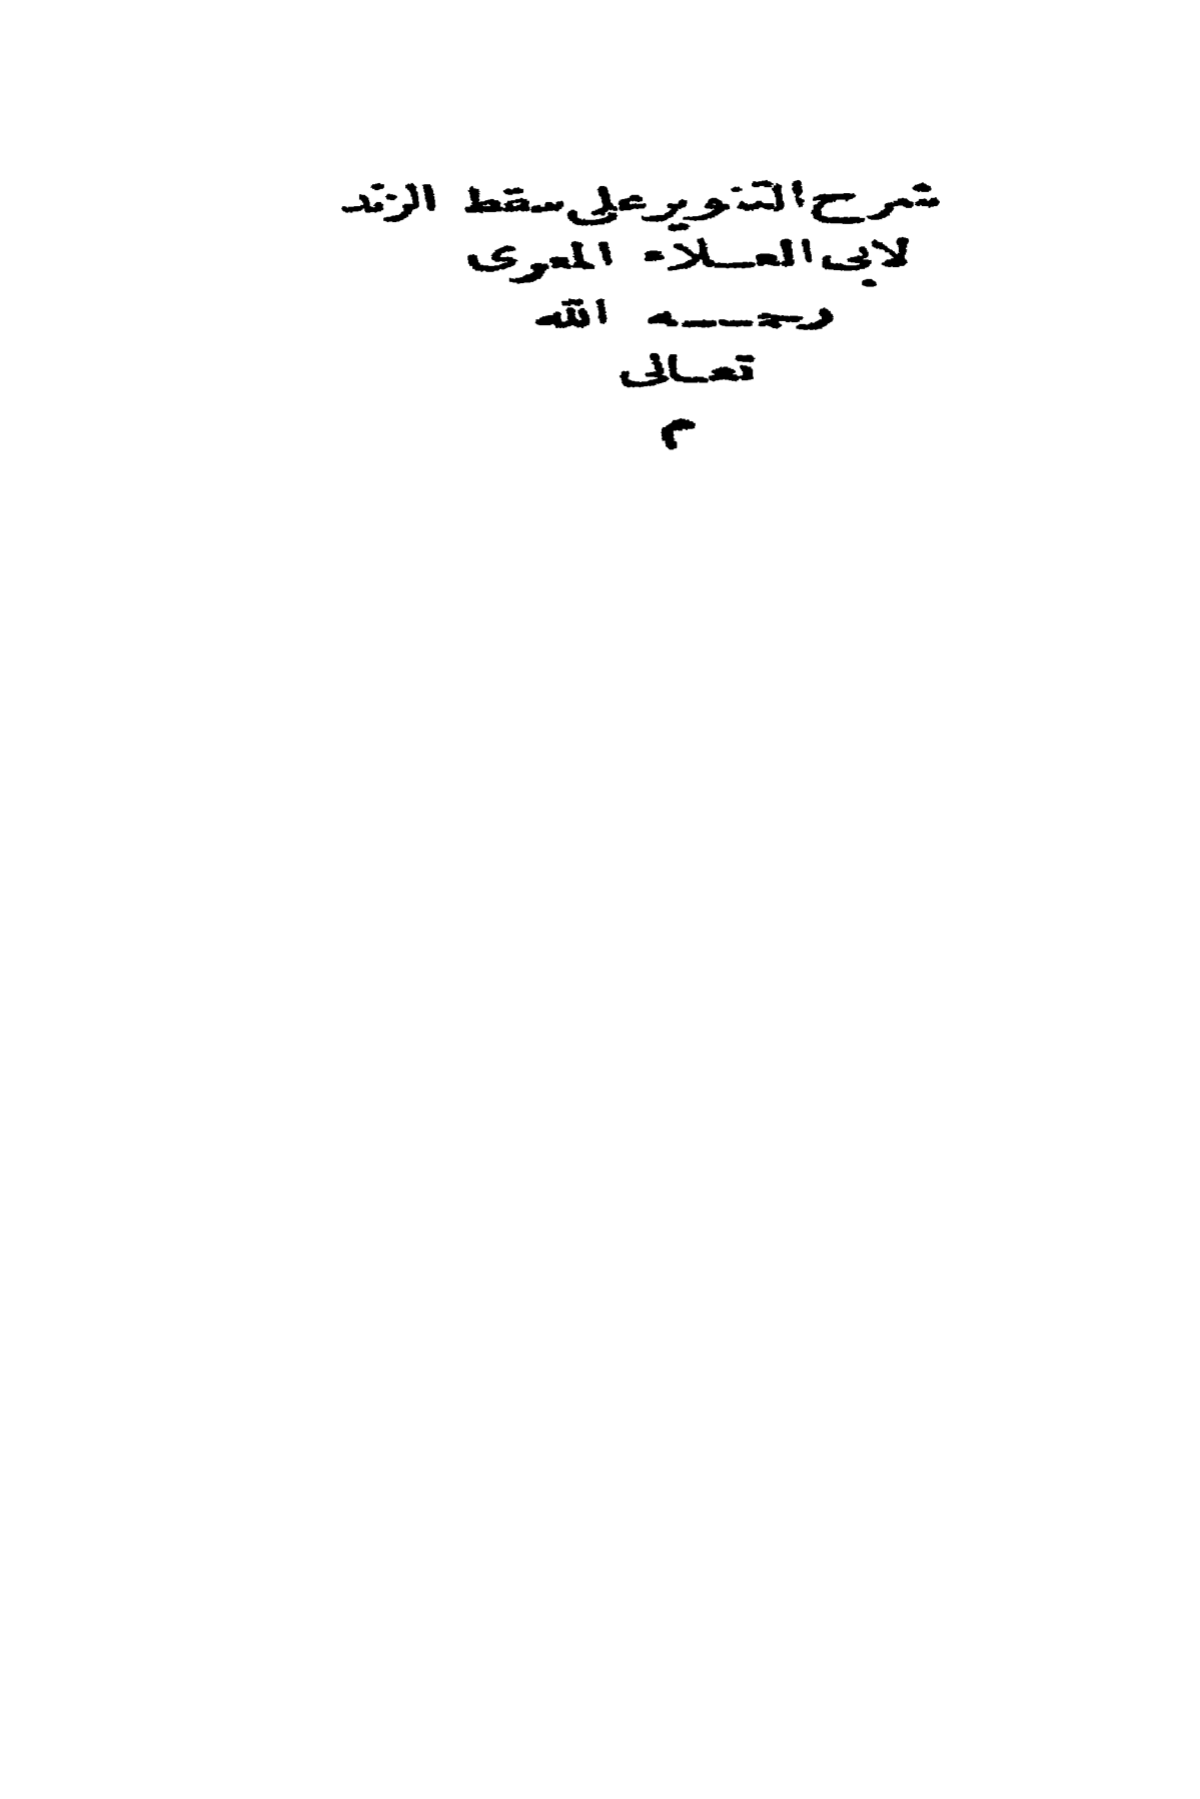 شرح التنوير على سقط الزند
لابى العـلاء المعرى
رحـــه الله
تعـالى
م